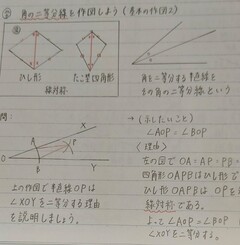 ⑤ 角の二等分線を作図しよう(基本の作図2)
ひし形
たこ型四角形
線対称
角を二等分する半直線を
その角の二等分線という
問:
X
A
P
O
B
Y
上の作図で半直線OPは
∠XOYを二等分する理由
を説明しましょう。
→(示したいこと)
∠AOP=∠BOP
〈理由〉
左の図でOA=AP=PB=
四角形OAPBはひし形で
ひし形OAPBはOPを
線対称である。
よって∠AOP=∠BOP
∠XOYを二等分する。